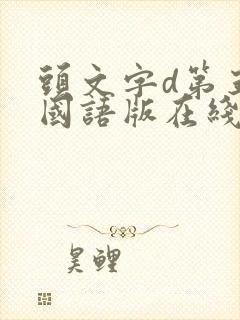 頭文字d第
國語版在綫
昊鲤